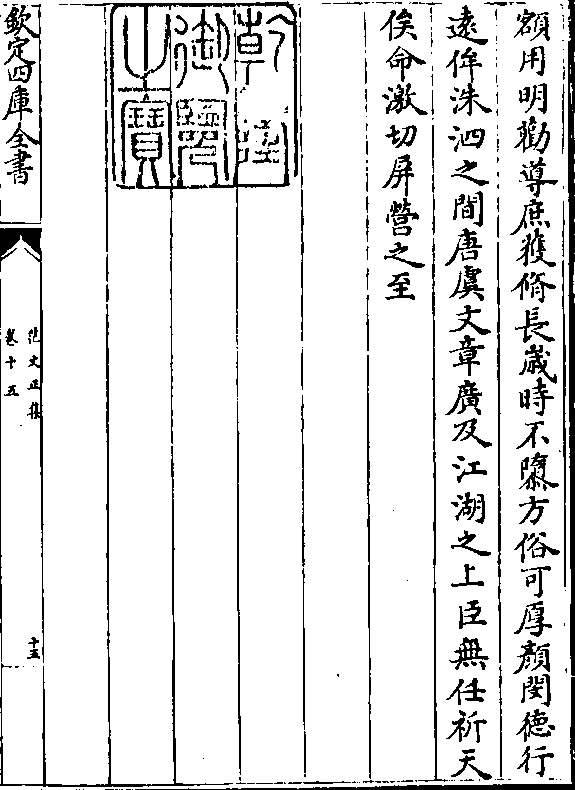 額用明勸導庶獲脩長歳時不隳方俗可厚顔閔徳行
逺侔洙泗之間唐虞文章廣及江湖之上臣無任祈天
俟命激切屏營之至
乾隆
御覽
之寶
欽定四庫全書
范文正集
卷十五
十五